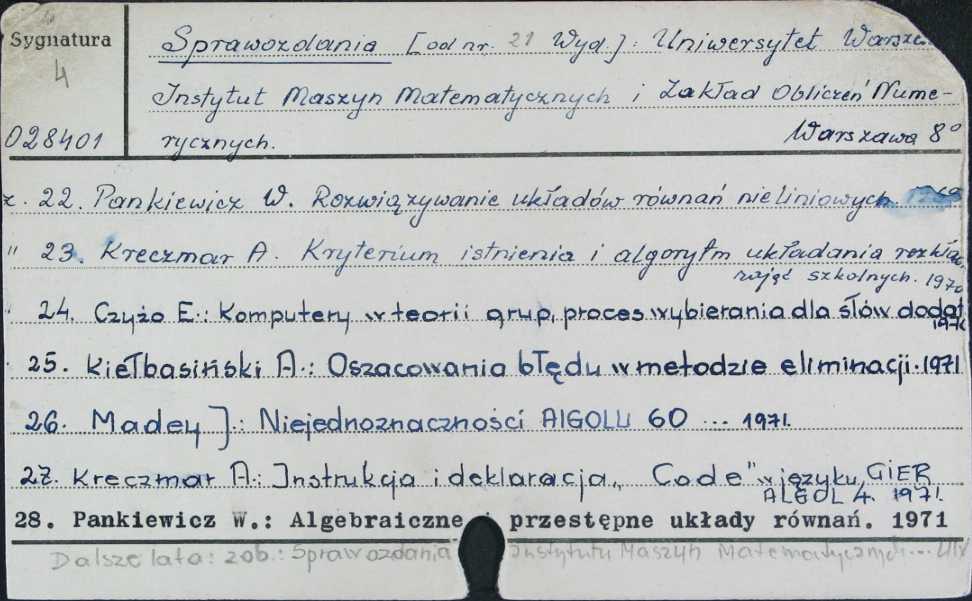 Sygnatura
4
028401
Sprawozdania [od nr. 21 Wyd.]: Uniwersytet
Instytut Maszyn Matematycznych i Zakład Obliczeń Nume-
rycznych. Warszawa 8°
z. 22. Pankiewicz W. Rozwiązywanie układów równań nieliniowych.
" 23. Kreczmar A. Kryterium istnienia i algorytm układania
zajęć szkolnych. 1970
" 24. Czyżo E.: Komputery w teorii grup, proces wybierania dla słów
25. Kiełbasiński A.: Oszacowania błędu w metodzie eliminacji. 1971
26. Madey J.: Niejednoznaczności AlGOLU 60 ... 1971.
27. Kreczmar A.: Instrukcja i deklaracja „Code" w języku GIER
ALGOL 4. 1971.
28. Pankiewicz W.: Algebraiczne i przestępne układy równań. 1971
Dalsze lata: zob.: Sprawozdania Instytutu Maszyn Matematycznych...